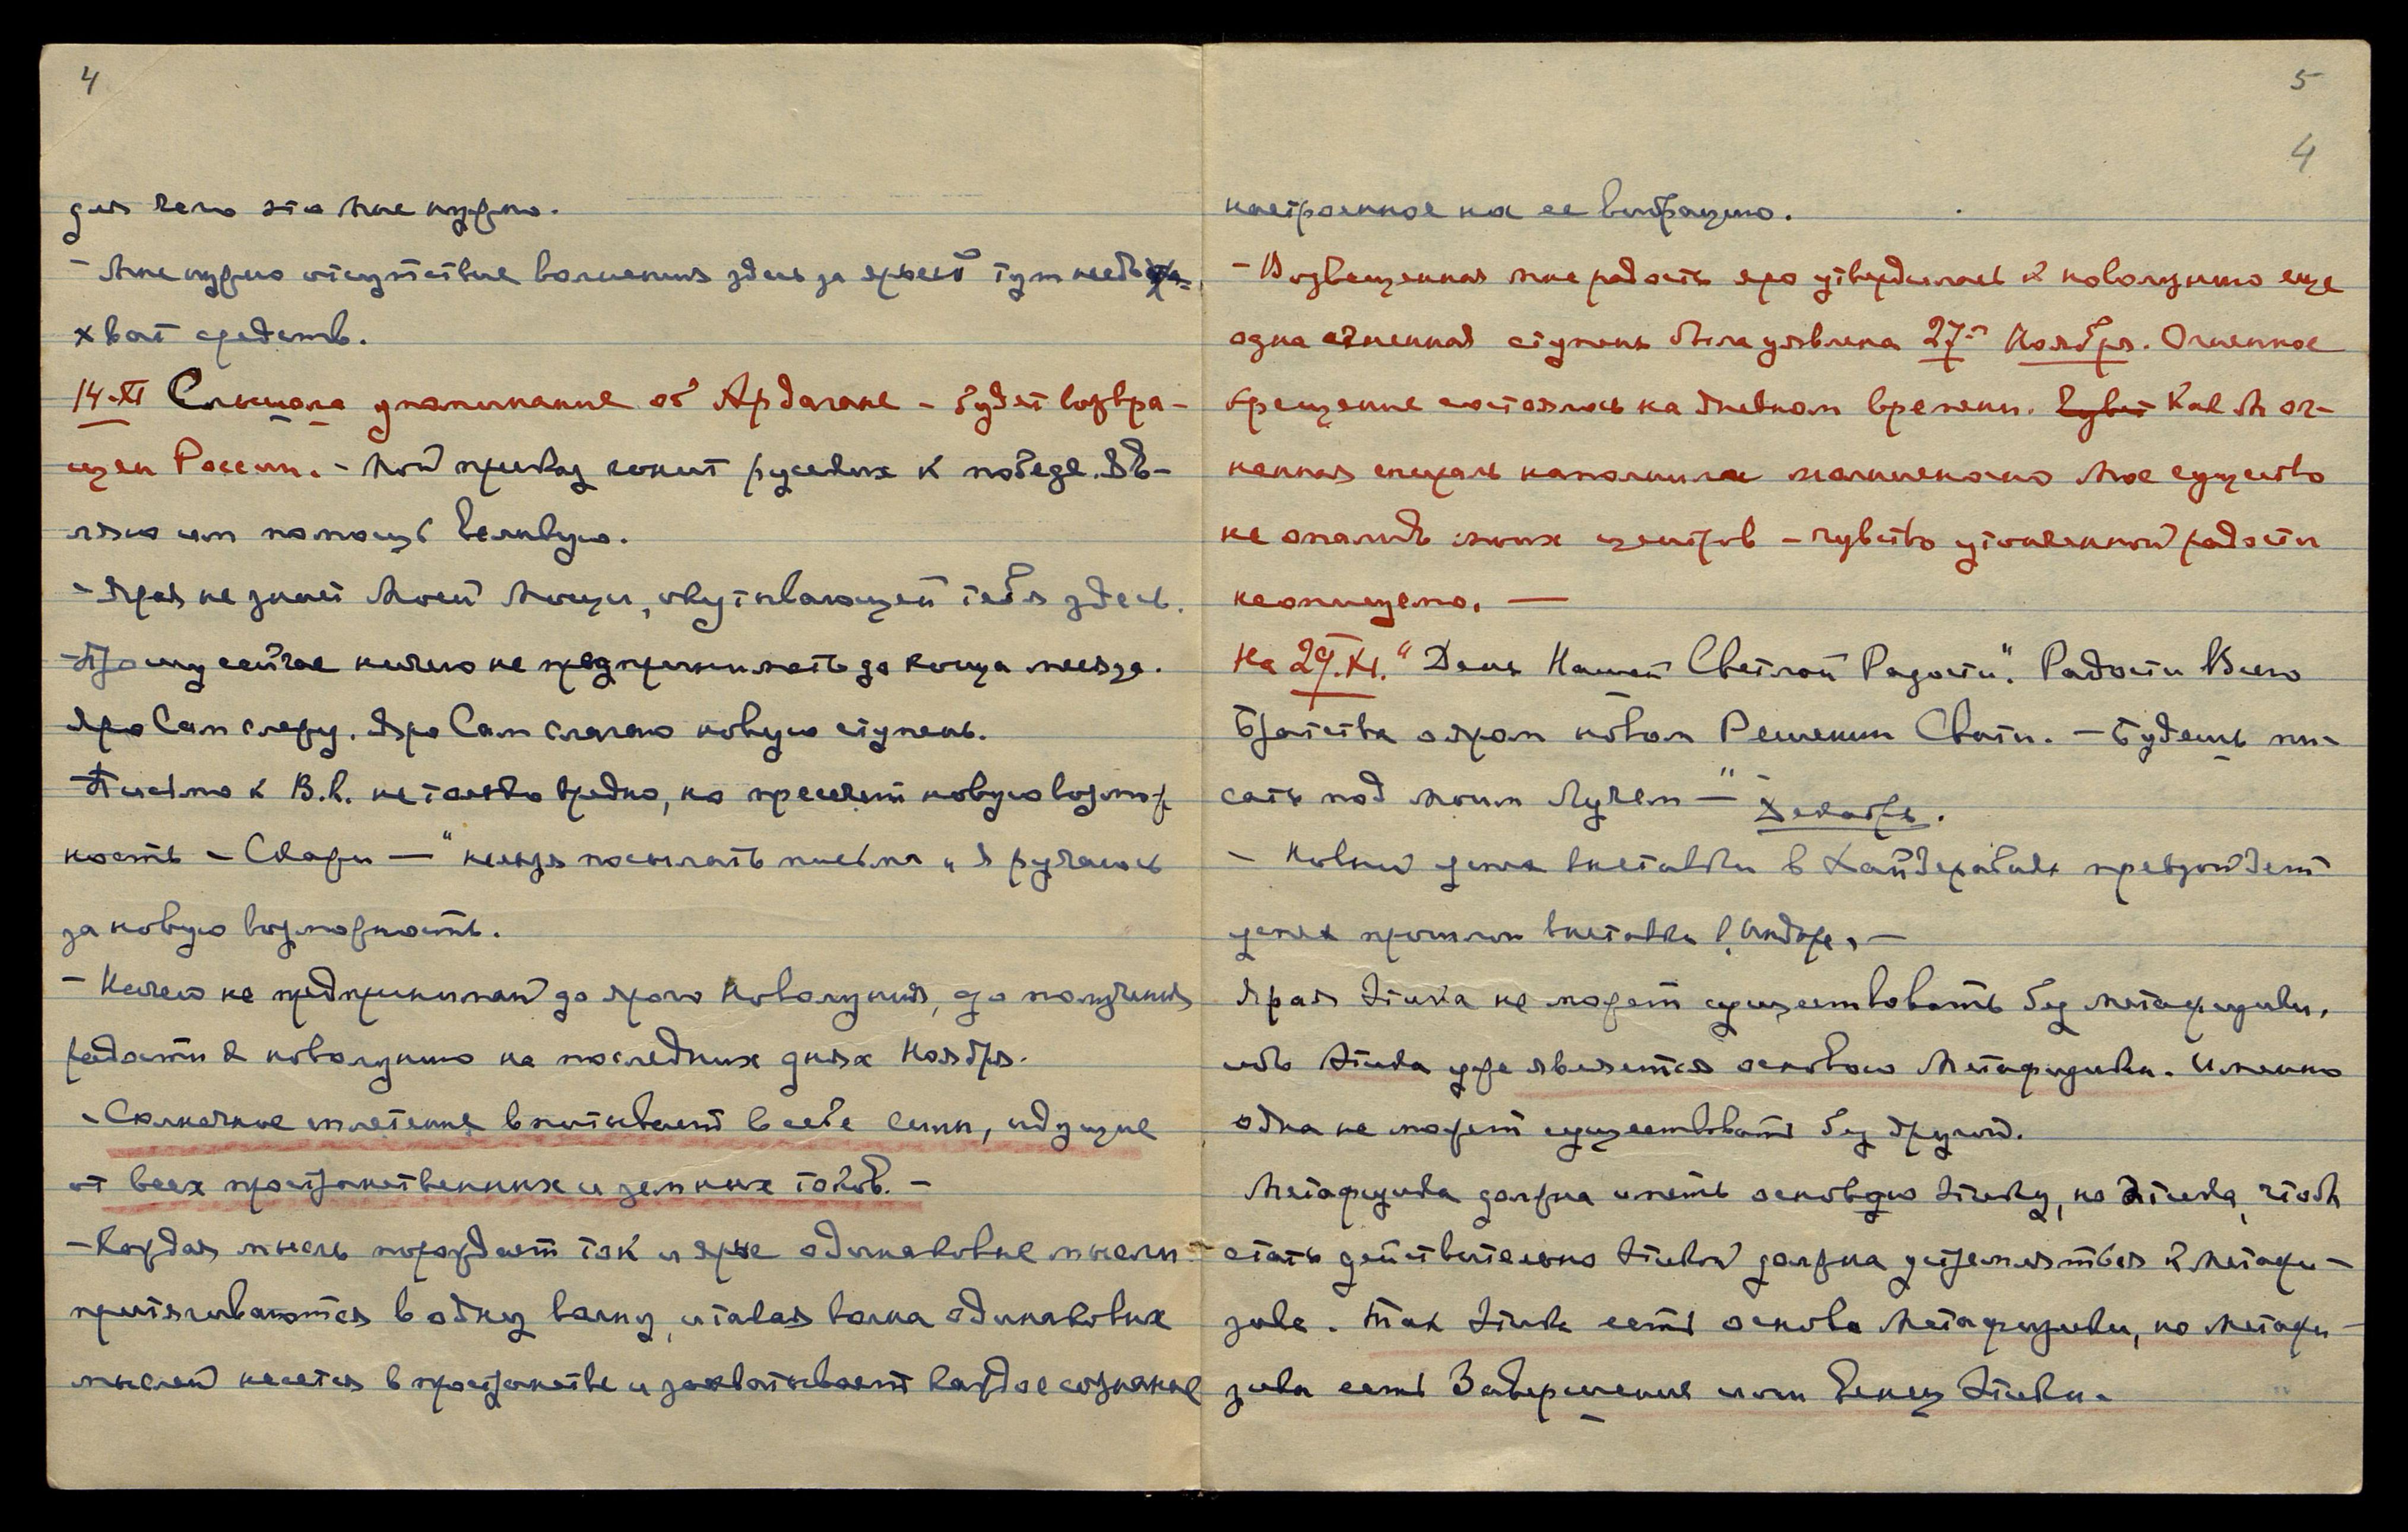 4
для чего это Мне нужно.
- Мне нужно отсутствие волнения здесь за ярый тут
хват средств.
14-XI Слышала упоминание об Ардагане - будет возвра-
щен России. - Мой приказ гонит русских к победе. Яв-
ляю им помощь Великую.
- Ярая не знает Моей Мощи, окутывающей тебя здесь.
- Прошу сейчас ничего не предпринимать до конца месяца.
Яро Сам слежу. Яро Сам слагаю новую ступень.
Письмо к В.К. не только вредно, но пресечет новую возмож
ность - Скажи — "нельзя посылать письма „ Я ручаюсь
за новую возможность.
- Ничего не предпринимай до ярого Новолуния, до получения
радости к новолунию на последних днях Ноября.
- Солнечное сплетение впитывает в себе силы, идущие
от всех пространственных и земных токов. -
- Каждая мысль порождает ток и ярые одинаковые мысли
притягиваются в одну волну, и такая волна одинаковых
мыслей несется в пространстве и захватывает каждое сознание
5
4
настроенное на ее вибрацию.
- Возвещенная мне радость яро утвердилась к новолунию еще
одна огненная ступень была уявлена 27-го Ноября. Огненное
крещение состоялось на дневном времени. Как бы ог-
ненная спираль наполнила молниеносно мое существо
не опалив моих центров - чувство утонченной радости
неописуемо. —
На 29.XI. "День Нашей Светлой Радости". Радости Всего
Братства о яром новом Решении Свати. - Будешь пи-
сать под моим Лучем — " Декабрь.
- Новый успех выставки в Хайдерабаде превзойдет
успех прошлой выставки в Индоре. —
Ярая Этика не может существовать без метафизики,
ибо Этика уже является основою Метафизики. Именно
одна не может существовать без другой.
Метафизика должна иметь основою Этику, но Этика, чтобы
стать действительно Этикой должна устремляться к Метафи-
зике. Так Этика есть основа Метафизики, но Метафи-
зика есть Завершение или Венец Этики.